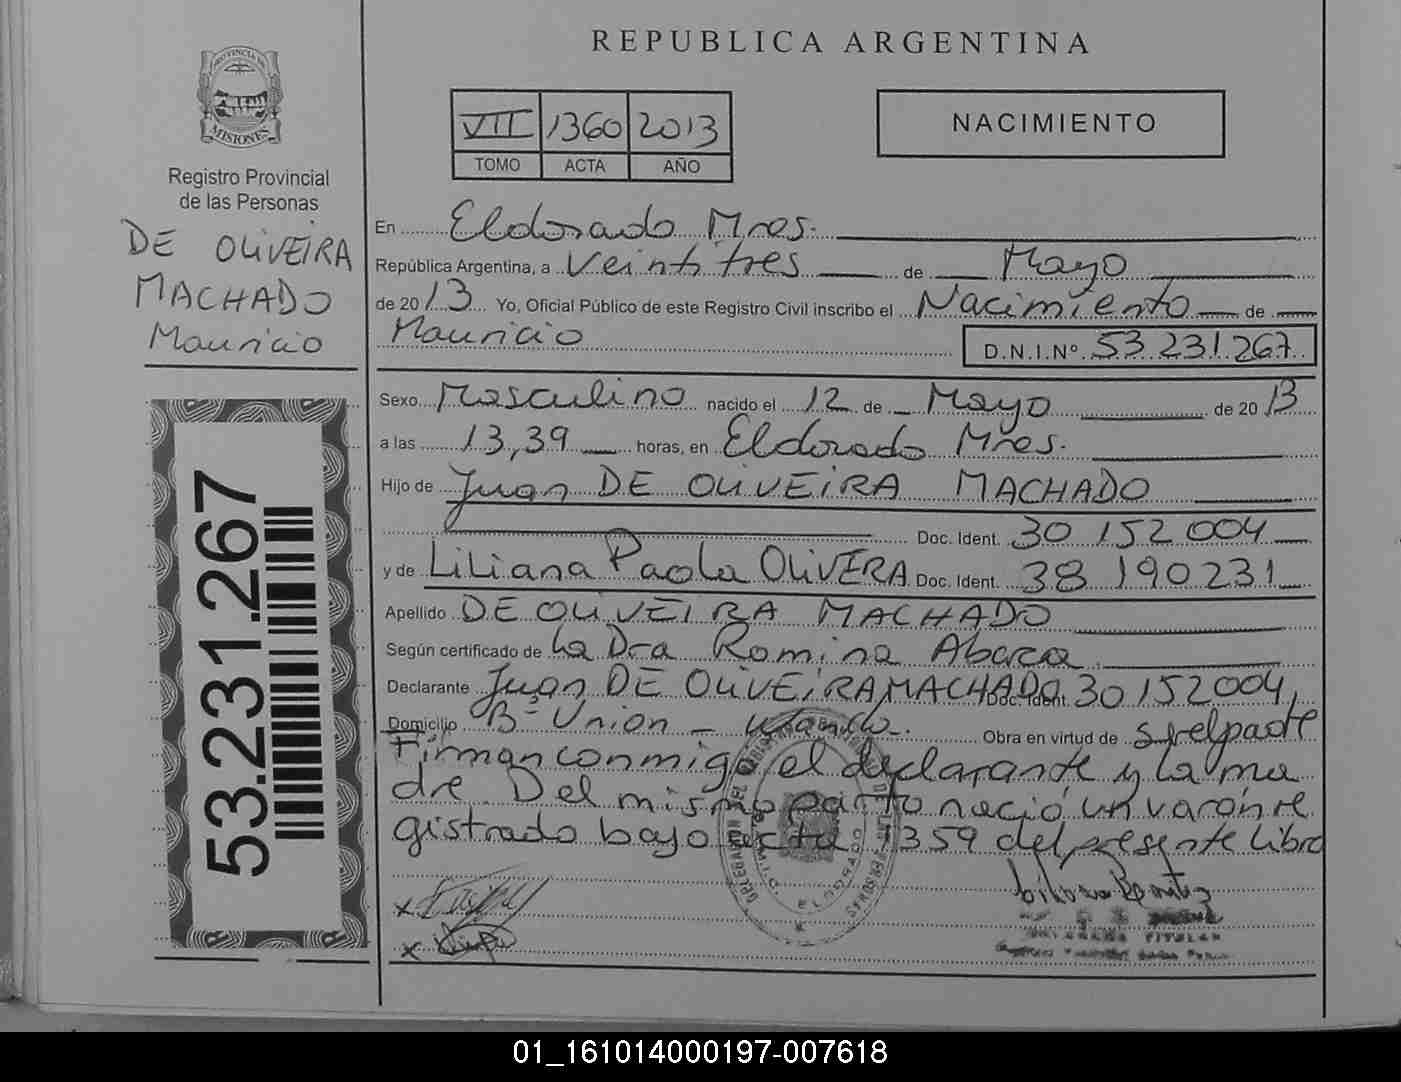 REPUBLICA ARGENTINA
PROVINCIA DE
MISIONES
Registro Provincial
de las Personas
DE OLIVEIRA
MACHADO
Mauricio
53.231.267
VII 1360 2013
TOMO ACTA AÑO
NACIMIENTO
En Eldorado Mnes.
República Argentina, a Veintitres de Mayo
de 2013 Yo, Oficial Público de este Registro Civil inscribo el Nacimiento de
Mauricio D.N.I.Nº 53.231.267
Sexo Masculino nacido el 12 de Mayo de 2013
a las 13,39 horas, en Eldorado Mnes.
Hijo de Juan DE OLIVEIRA MACHADO
Doc. Ident. 30 152 004
y de Liliana Paola OLIVERA Doc. Ident. 38 190231
Apellido DE OLIVEIRA MACHADO
Según certificado de La Dra Romina Abara
Declarante Juan DE OLIVEIRA MACHADO Doc. Ident. 30 152004
Domicilio Bº Union - Wanda. Obra en virtud de
Firman conmigo el declarante y la ma
dre. Del mismo parto nació un varón re
gistrado bajo acta 1359 del presente Libro
ELDORADO
TITULAR
01_161014000197-007618